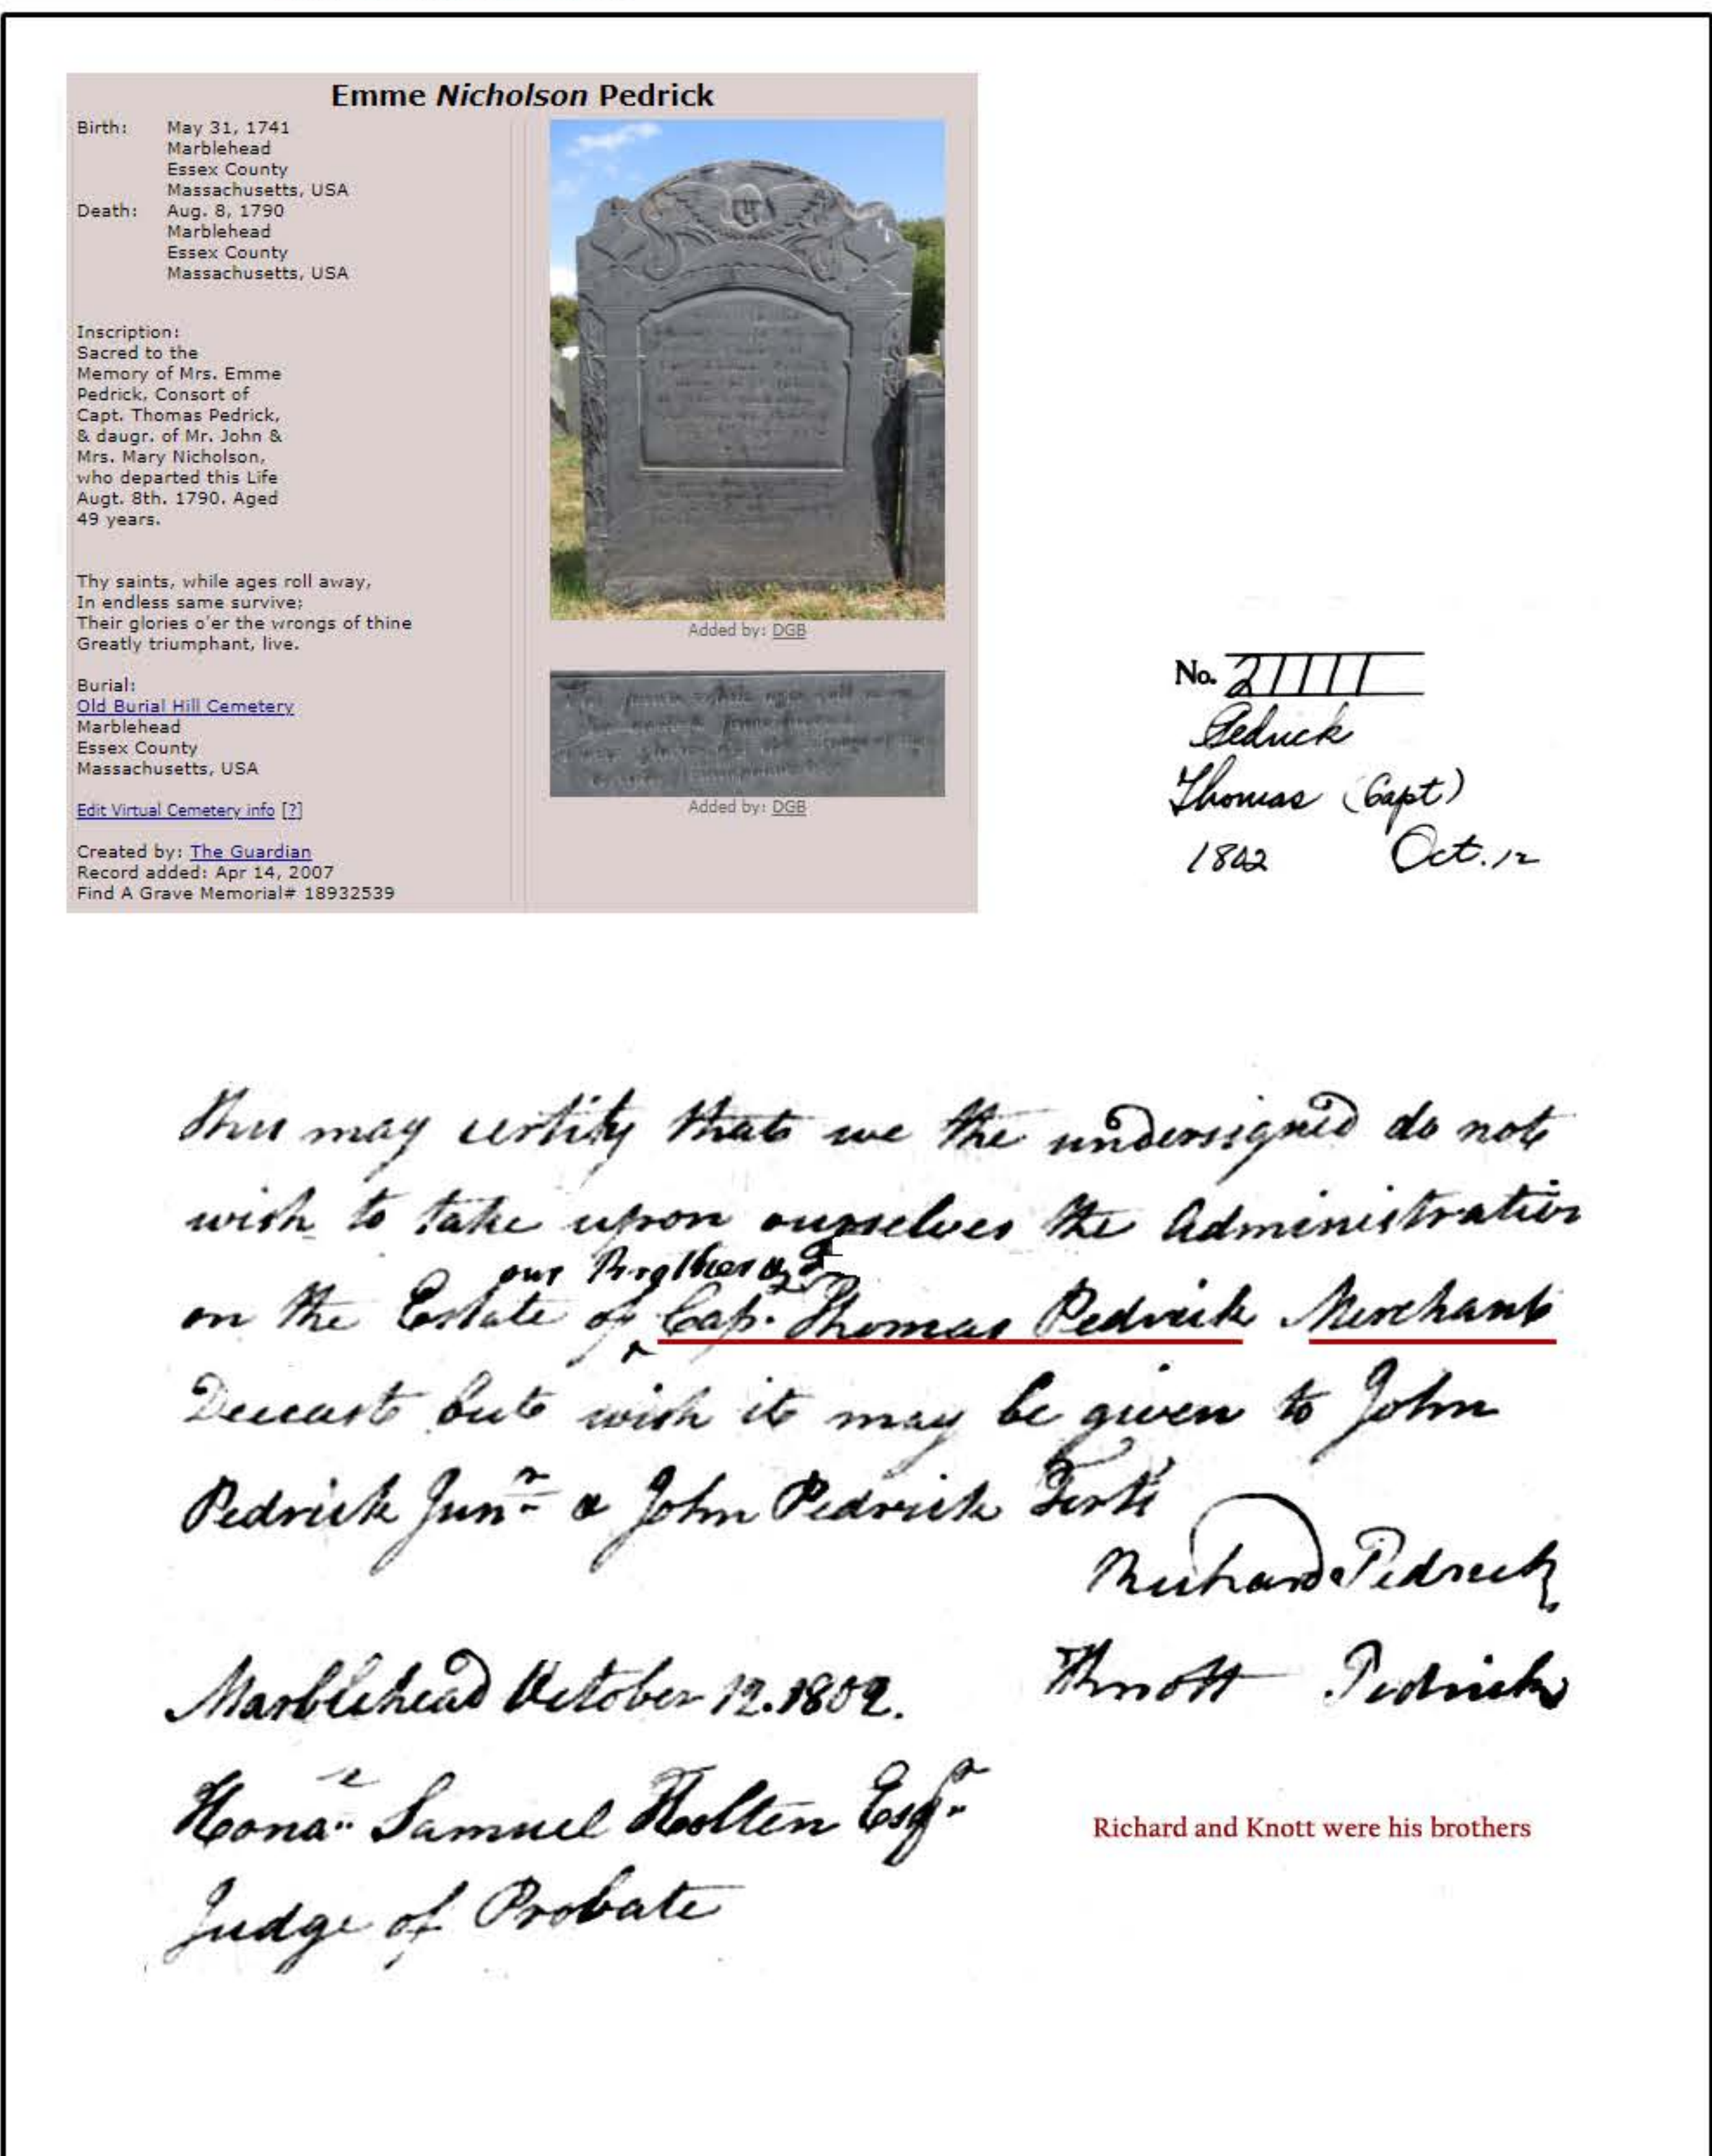 Emme Nicholson Pedrick
Birth: May 31, 1741
Marblehead
Essex County
Massachusetts, USA
Death: Aug. 8, 1790
Marblehead
Essex County
Massachusetts, USA
Inscription:
Sacred to the
Memory of Mrs. Emme
Pedrick, Consort of
Capt. Thomas Pedrick,
& daugr. of Mr. John &
Mrs. Mary Nicholson,
who departed this Life
Augt. 8th. 1790. Aged
49 years.
Thy saints, while ages roll away,
In endless same survive;
Their glories o'er the wrongs of thine
Greatly triumphant, live.
Burial:
Old Burial Hill Cemetery
Marblehead
Essex County
Massachusetts, USA
Edit Virtual Cemetery info [?]
Created by: The Guardian
Record added: Apr 14, 2007
Find A Grave Memorial# 18932539
Added by: DGB
Added by: DGB
No. 21111
Pedrick
Thomas (Capt)
1802 Oct. 12
This may certify that we the undersigned do not
wish to take upon ourselves the Administration
our Brother
on the Estate of ^ Cap. Thomas Pedrick Merchant
Deceast but wish it may be given to John
Pedrick Junr & John Pedrick Terts
Richard Pedrick
Marblehead October 12. 1802.
Knott Pedrick
Honae Samuel Holten Esqr
Judge of Probate
Richard and Knott were his brothers